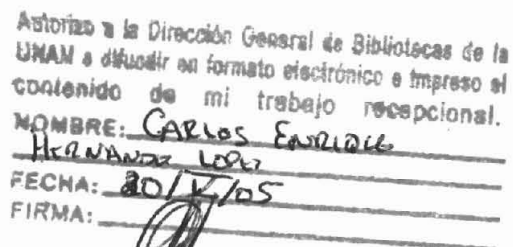 Autorizo a la Dirección General de Bibliotecas de la
UNAM a difundir en formato electrónico e impreso el
contenido de mi trabajo recepcional.
NOMBRE: CARLOS ENRIQUE
HERNANDEZ LOPEZ
FECHA: 20/V/05
FIRMA: